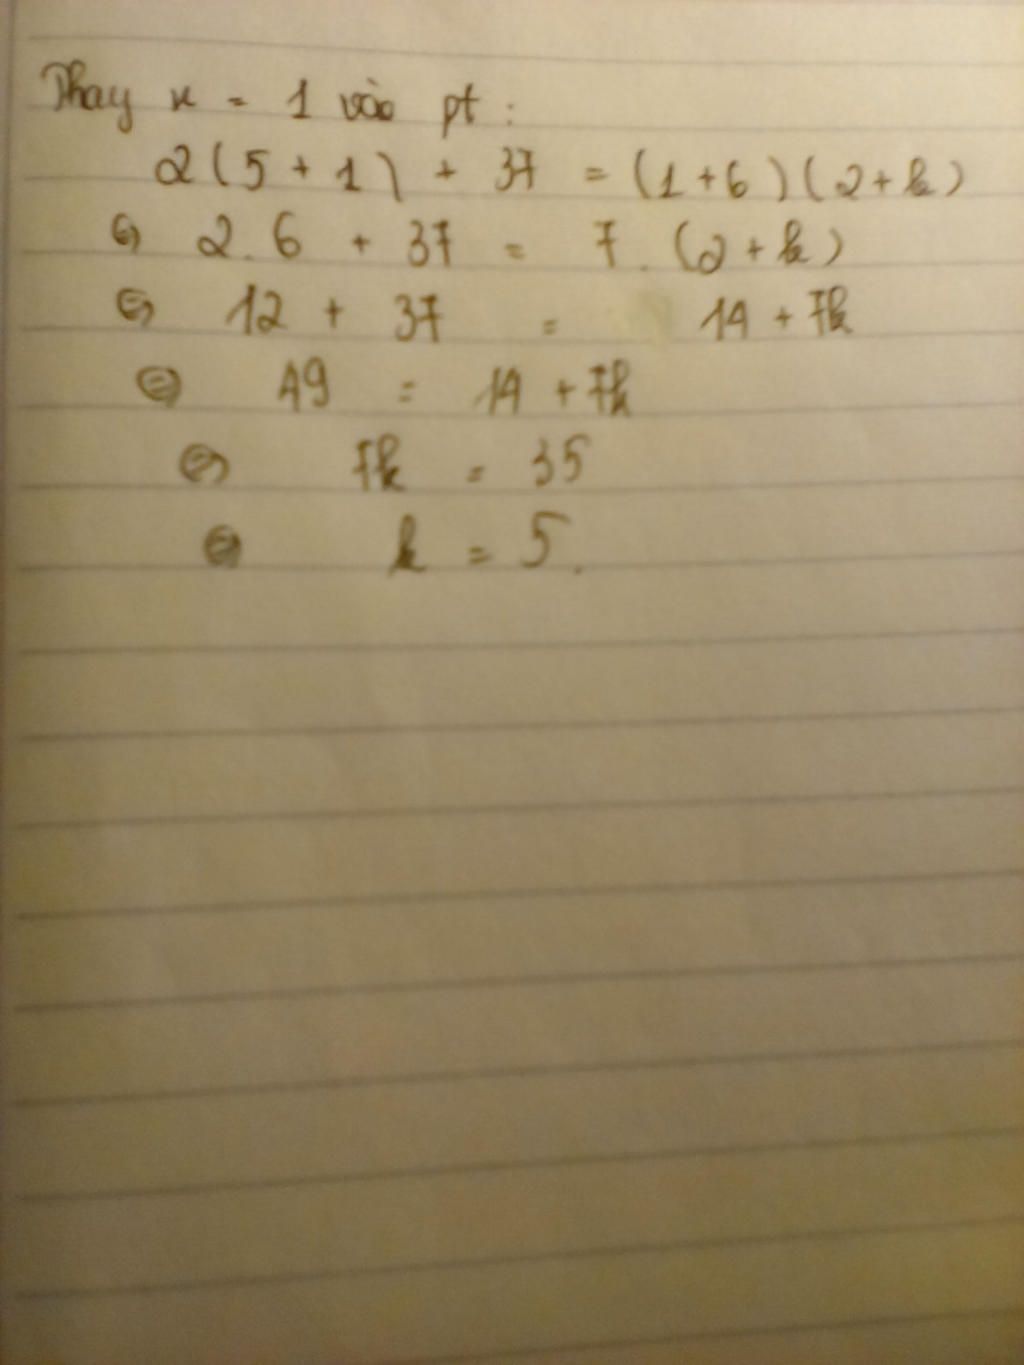 Thay x = 1 vào pt :
2(5 + 1) + 37 = (1+6)(2+k)
⇔ 2.6 + 37 = 7.(2+k)
⇔ 12 + 37 = 14 + 7k
⇔ 49 = 14 + 7k
⇔ 7k = 35
⇔ k = 5.